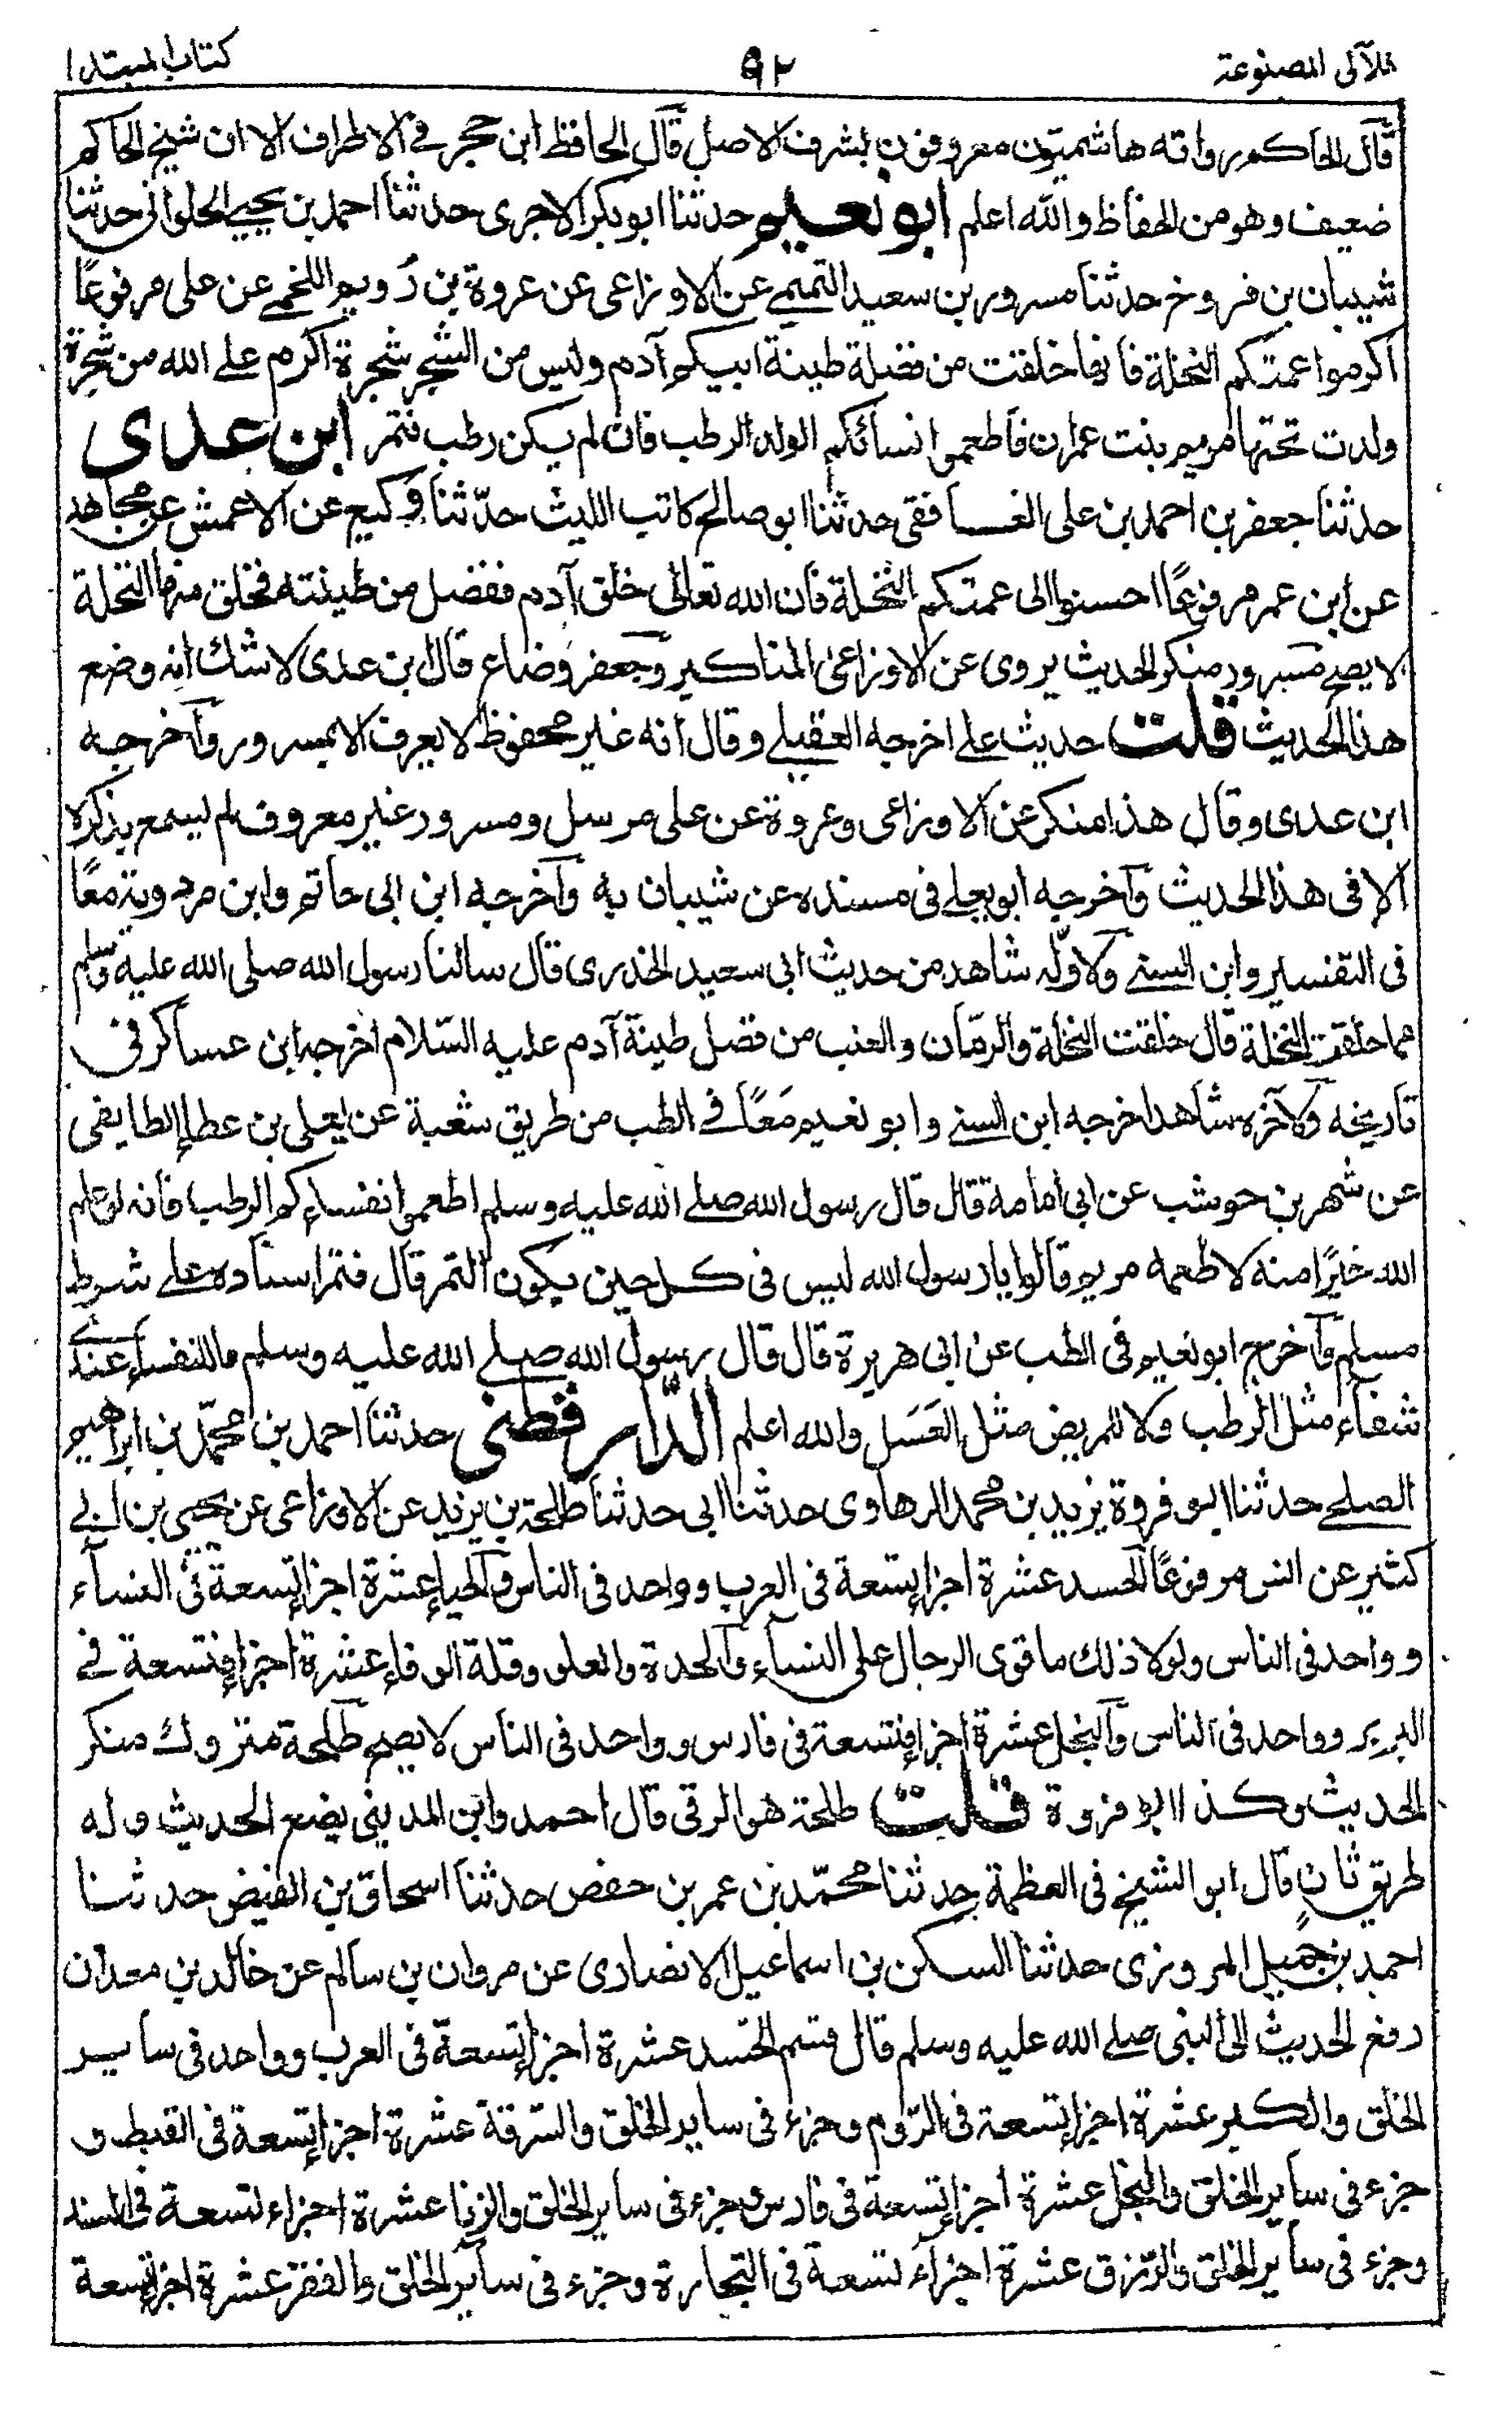 اللآلى المصنوعة ٩٢ كتاب المبتدا
قال الحاكم رواته هاشميون معروفون بشرف الاصل قال الحافظ ابن حجر في الاطراف الا ان شيخ الحاكم
ضعيف وهو من الحفاظ والله اعلم ابو نعيم حدثنا ابو بكر الاجرى حدثنا احمد بن يحيى الحلوانى حدثنا
شيبان بن فروخ حدثنا مسرور بن سعيد التميمى عن الاوزاعى عن عروة بن رُويم اللخمى عن على مرفوعًا
اكرموا عمتكم النخلة فانها خلقت من فضلة طينة ابيكم آدم وليس من الشجر شجرة اكرم على الله من شجرة
ولدت تحتها مريم بنت عمران فاطعموا نسائكم الولد الرطب فان لم يكن رطب فتمر ابن عدى
حدثنا جعفر بن احمد بن على الغافقى حدثنا ابو صالح كاتب الليث حدّثنا وكيع عن الاعمش عن مجاهد
عن ابن عمر مرفوعًا احسنوا الى عمتكم النخلة فان الله تعالى خلق آدم ففضل من طينته فخلق منها النخلة
لا يصح مسرور منكر الحديث يروى عن الاوزاعى المناكير وجعفر وضاع قال ابن عدى لا شك انه وضع
هذا الحديث قلت حديث على اخرجه العقيلى وقال انه غير محفوظ لا يعرف الا بمسرور وآخرجه
ابن عدى وقال هذا منكر عن الاوزاعى وعروة عن على مرسل ومسرور غير معروف لم يسمع بذكره
الا فى هذا الحديث وآخرجه ابو يعلى فى مسنده عن شيبان به وآخرجه ابن ابى حاتم وابن مردويه معًا
فى التفسير وابن السنى ولاوّله شاهد من حديث ابى سعيد الخدرى قال سالنا رسول الله صلى الله عليه وسلم
مما خلقت النخلة قال خلقت النخلة والرمّان والعنب من فضل طينة آدم عليه السّلام اخرجه ابن عساكر فى
تاريخه ولآخره شاهد اخرجه ابن السنى وابو نعيم مَعًا في الطب من طريق شعبة عن يعلى بن عطاء الطايفى
عن شهر بن حوشب عن ابى امامة قال قال رسول الله صلى الله عليه وسلم اطعموا نفساءكم الرطب فانه لو علم
الله خيرًا منه لاطعمه مريم قالوا يا رسول الله ليس فى كل حين يكون التمر قال فتمر اسناده على شرط
مسلم وآخرج ابو نعيم فى الطب عن ابى هريرة قال قال رسول الله صلى الله عليه وسلم ما للنفساء عندى
شفاء مثل الرطب ولا للمريض مثل العَسَل والله اعلم الدّارقطنى حدثنا احمد بن محمّد بن ابراهيم
الصلحى حدثنا ابو فروة يزيد بن محمد الرهاوى حدثنا ابى حدثنا طلحة بن يزيد عن الاوزاعى عن يحيى بن ابى
كثير عن انس مرفوعًا الحسد عشرة اجزاء تسعة فى العرب وواحد فى الناس والحياء عشرة اجزاء تسعة فى النساء
وواحد فى الناس ولولا ذلك ما قوى الرجال على النساء والحدة والعلو وقلة الوفاء عشرة اجزاء فتسعة في
البربر وواحد فى الناس والبخل عشرة اجزاء فتسعة فى فارس وواحد فى الناس لا يصح طلحة متروك منكر
الحديث وكذا ابو فروة قلت طلحة هو الرقى قال احمد وابن المدينى يضع الحديث وله
طريق ثانٍ قال ابو الشيخ فى العظمة حدثنا محمّد بن عمر بن حفص حدثنا اسحاق بن الفيض حدثنا
احمد بن جميل المروزى حدثنا السكن بن اسماعيل الانصارى عن مروان بن سالم عن خالد بن معدان
رفع الحديث الى النبى صلى الله عليه وسلم قال قسم الحسد عشرة اجزاء تسعة فى العرب وواحد فى ساير
الخلق والكبر عشرة اجزاء تسعة فى الرّوم وجزء فى ساير الخلق والسرقة عشرة اجزاء تسعة فى القبط و
جزء فى ساير الخلق والبخل عشرة اجزاء تسعة فى فارس وجزء فى ساير الخلق والزنا عشرة اجزاء تسعة فى السند
وجزء فى ساير الخلق والرّزق عشرة اجزاء تسعة فى التجارة وجزء فى ساير الخلق والفقر عشرة اجزاء تسعة